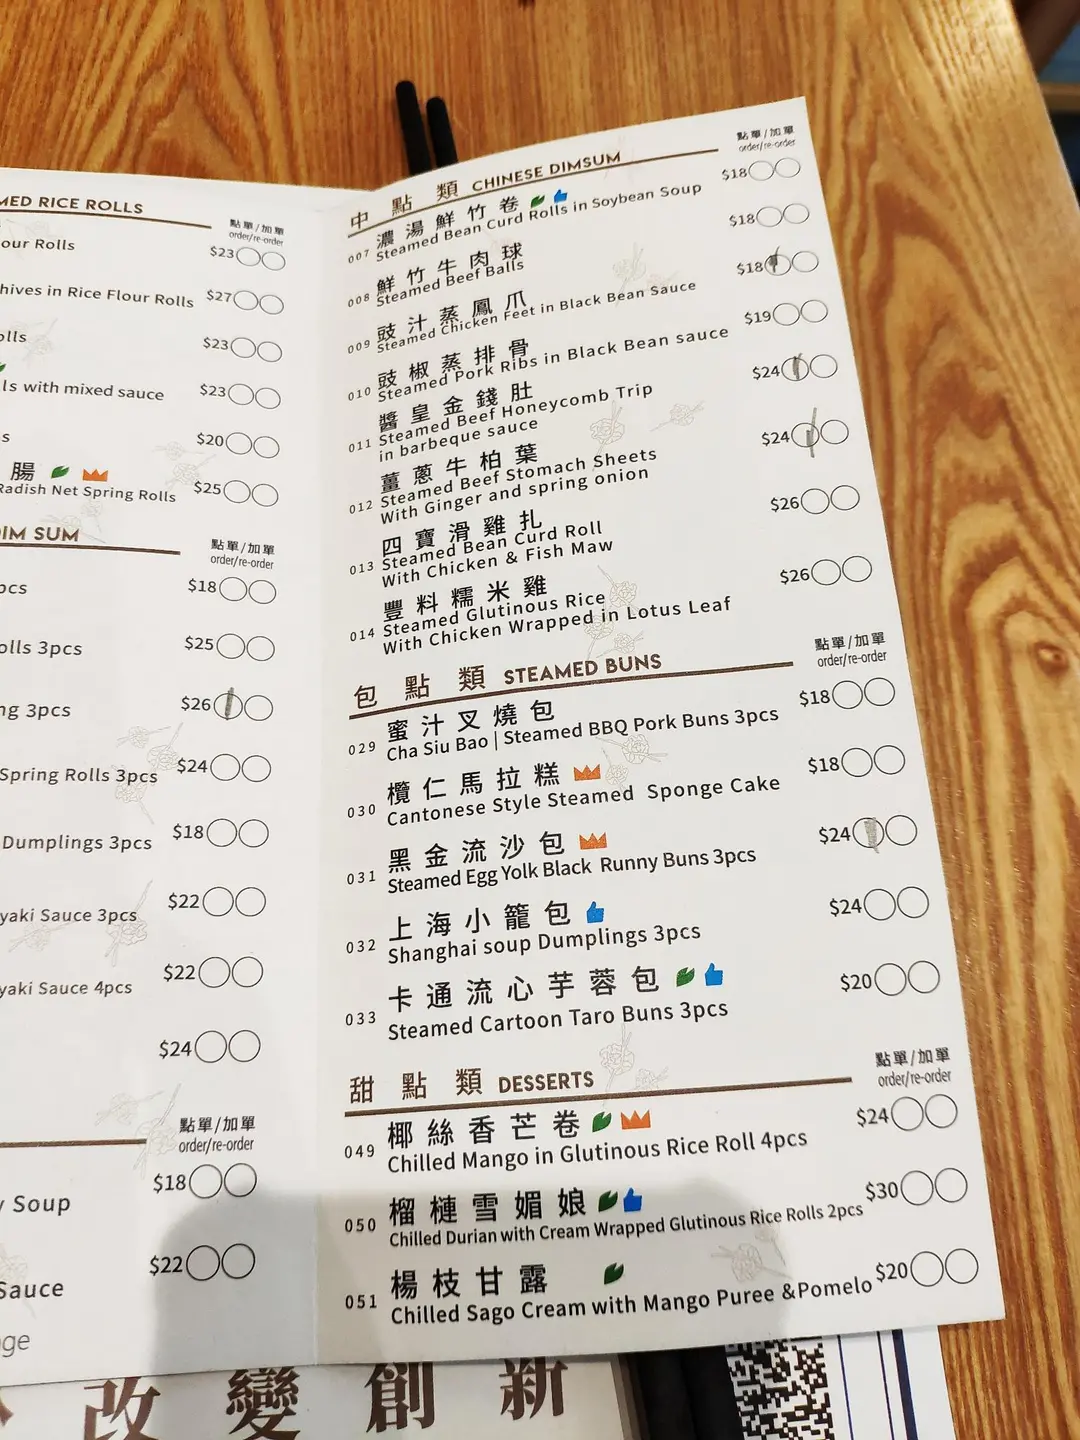 MED RICE ROLLS
點單/加單
order/re-order
our Rolls $23
hives in Rice Flour Rolls $27
olls $23
ls with mixed sauce $23
s $20
腸
Radish Net Spring Rolls $25
IM SUM
點單/加單
order/re-order
pcs $18
olls 3pcs $25
ng 3pcs $26
Spring Rolls 3pcs $24
Dumplings 3pcs $18
yaki Sauce 3pcs $22
yaki Sauce 4pcs $22
$24
點單/加單
order/re-order
$18
y Soup
$22
Sauce
ge
中點類 CHINESE DIMSUM
點單/加單
order/re-order
007 濃湯鮮竹卷 $18
Steamed Bean Curd Rolls in Soybean Soup
008 鮮竹牛肉球 $18
Steamed Beef Balls
009 豉汁蒸鳳爪 $18
Steamed Chicken Feet in Black Bean Sauce
010 豉椒蒸排骨 $19
Steamed Pork Ribs in Black Bean sauce
011 醬皇金錢肚 $24
Steamed Beef Honeycomb Trip
in barbeque sauce
012 薑蔥牛柏葉 $24
Steamed Beef Stomach Sheets
With Ginger and spring onion
013 四寶滑雞扎 $26
Steamed Bean Curd Roll
With Chicken & Fish Maw
014 豐料糯米雞 $26
Steamed Glutinous Rice
With Chicken Wrapped in Lotus Leaf
包點類 STEAMED BUNS
點單/加單
order/re-order
029 蜜汁叉燒包 $18
Cha Siu Bao | Steamed BBQ Pork Buns 3pcs
030 欖仁馬拉糕 $18
Cantonese Style Steamed Sponge Cake
031 黑金流沙包 $24
Steamed Egg Yolk Black Runny Buns 3pcs
032 上海小籠包 $24
Shanghai soup Dumplings 3pcs
033 卡通流心芋蓉包 $20
Steamed Cartoon Taro Buns 3pcs
甜點類 DESSERTS
點單/加單
order/re-order
049 椰絲香芒卷 $24
Chilled Mango in Glutinous Rice Roll 4pcs
050 榴槤雪媚娘 $30
Chilled Durian with Cream Wrapped Glutinous Rice Rolls 2pcs
051 楊枝甘露 $20
Chilled Sago Cream with Mango Puree &Pomelo
改變創新